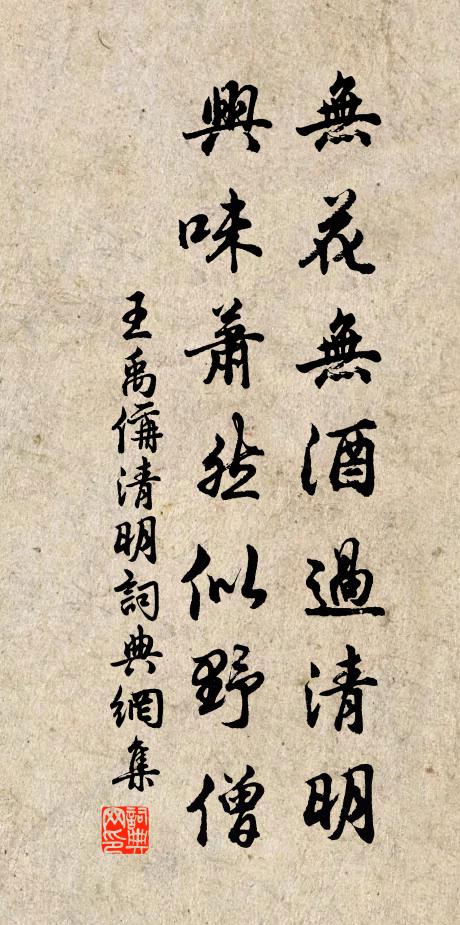 無花無酒過清明
興味蕭然似野僧
王禹偁清明詞典網集
詞典
网印